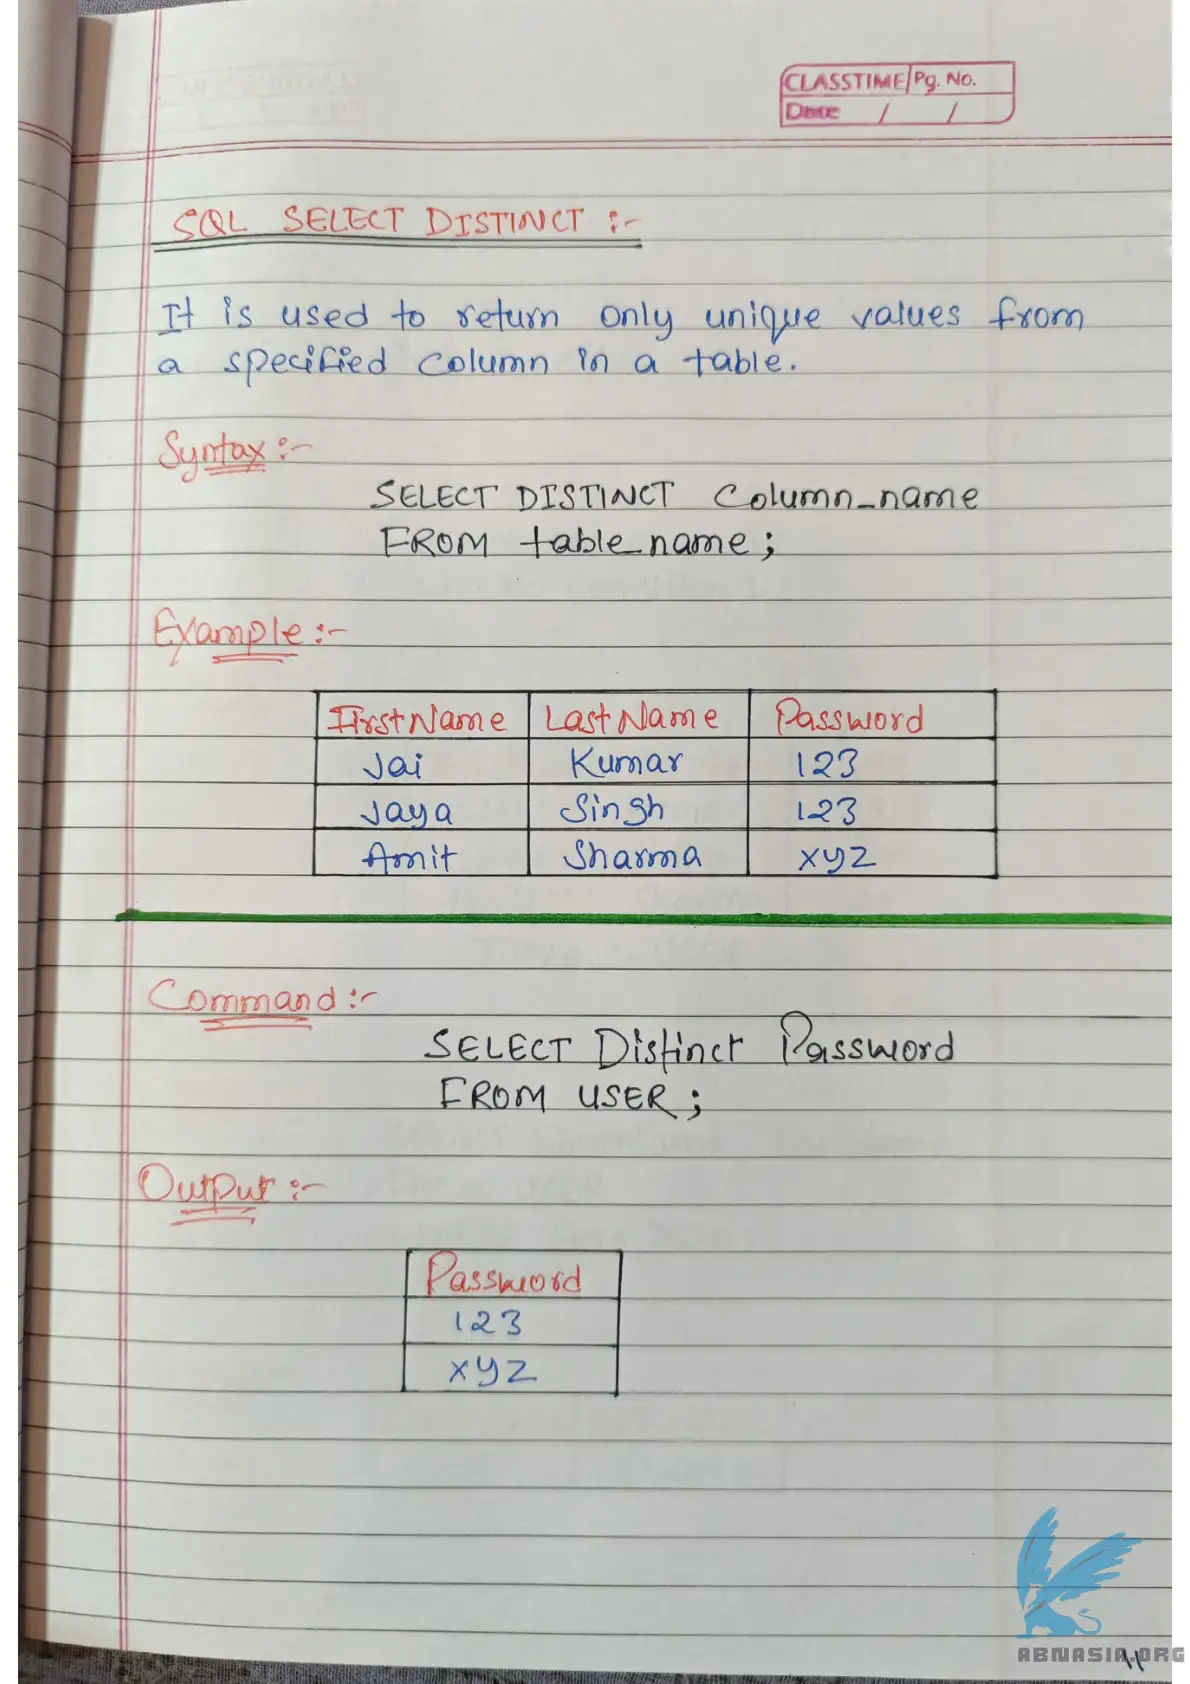 CLASSTIME Pg. No.
Date / /
SQL SELECT DISTINCT :-
It is used to return only unique values from
a specified column in a table.
Syntax :-
SELECT DISTINCT Column_name
FROM table_name ;
Example :-
FirstName LastName Password
Jai Kumar 123
Jaya Singh 123
Amit Sharma xyz
Command :-
SELECT Distinct Password
FROM USER ;
Output :-
Password
123
xyz
ABNASIA.ORG